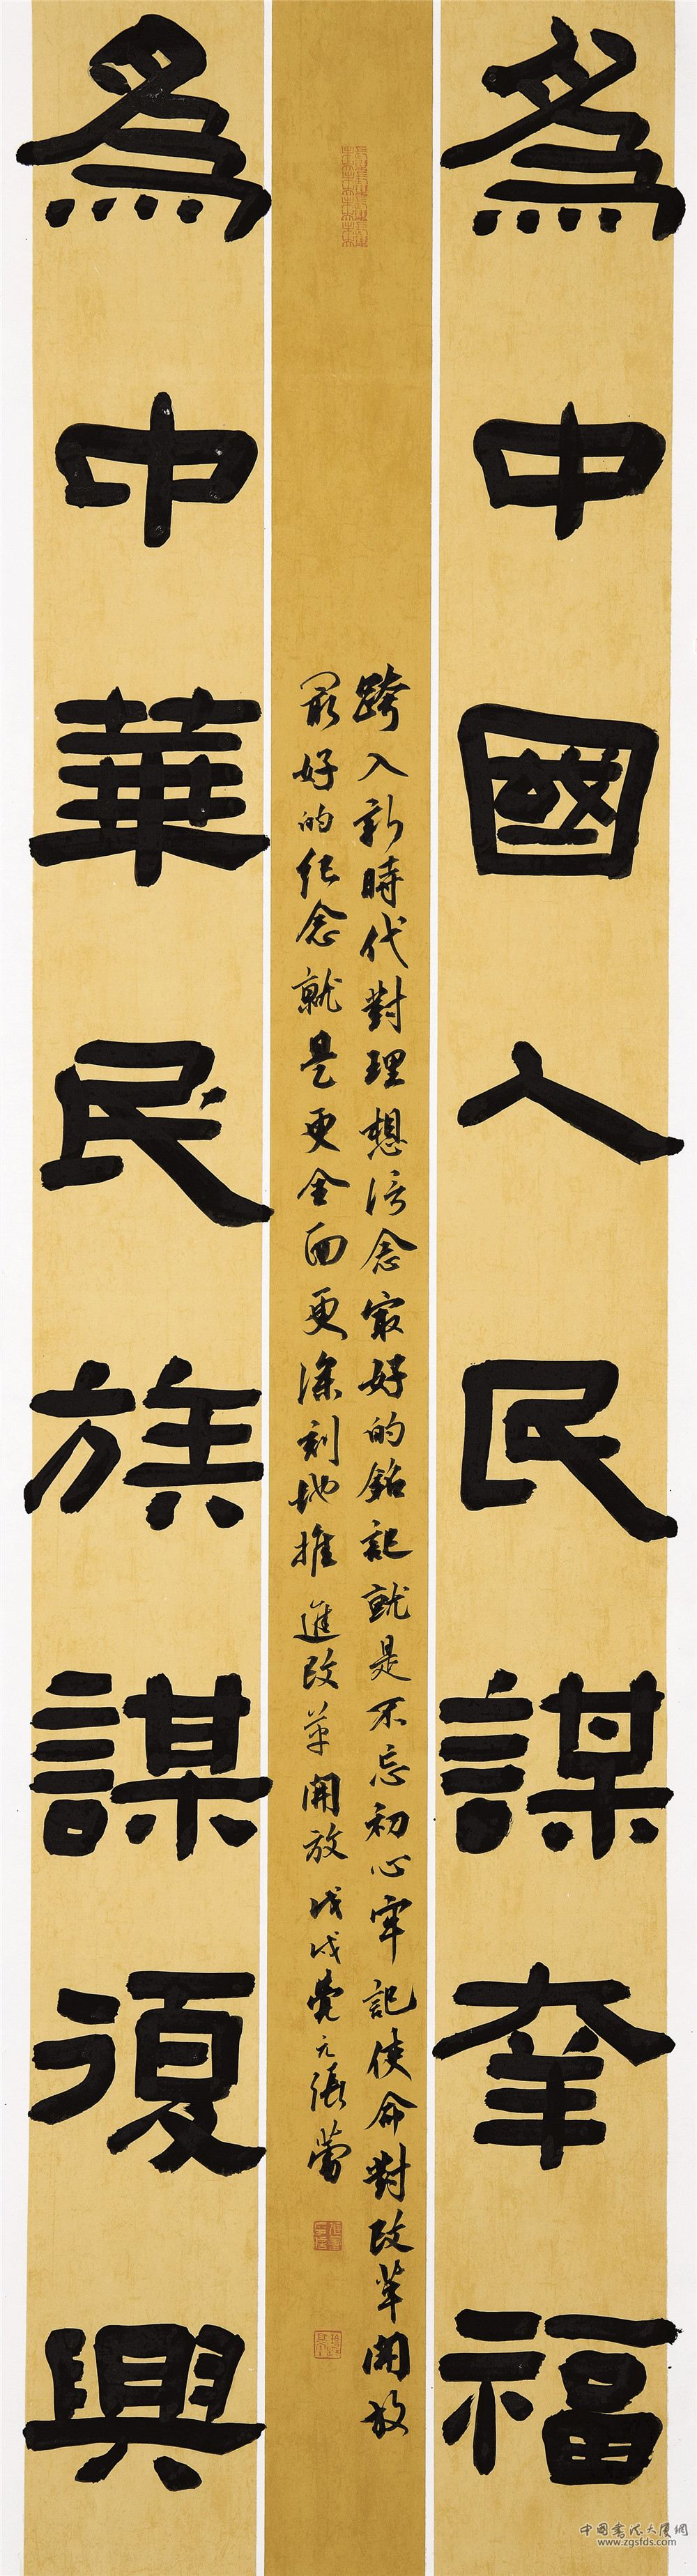 為中國人民謀幸福
跨入新時代對理想信念最好的銘記就是不忘初心牢記使命對改革開放
最好的紀念就是更全面更深刻地推進改革開放戊戌覺元張
為中華民族謀復興
中國書法大厦網
www.zgsfds.com